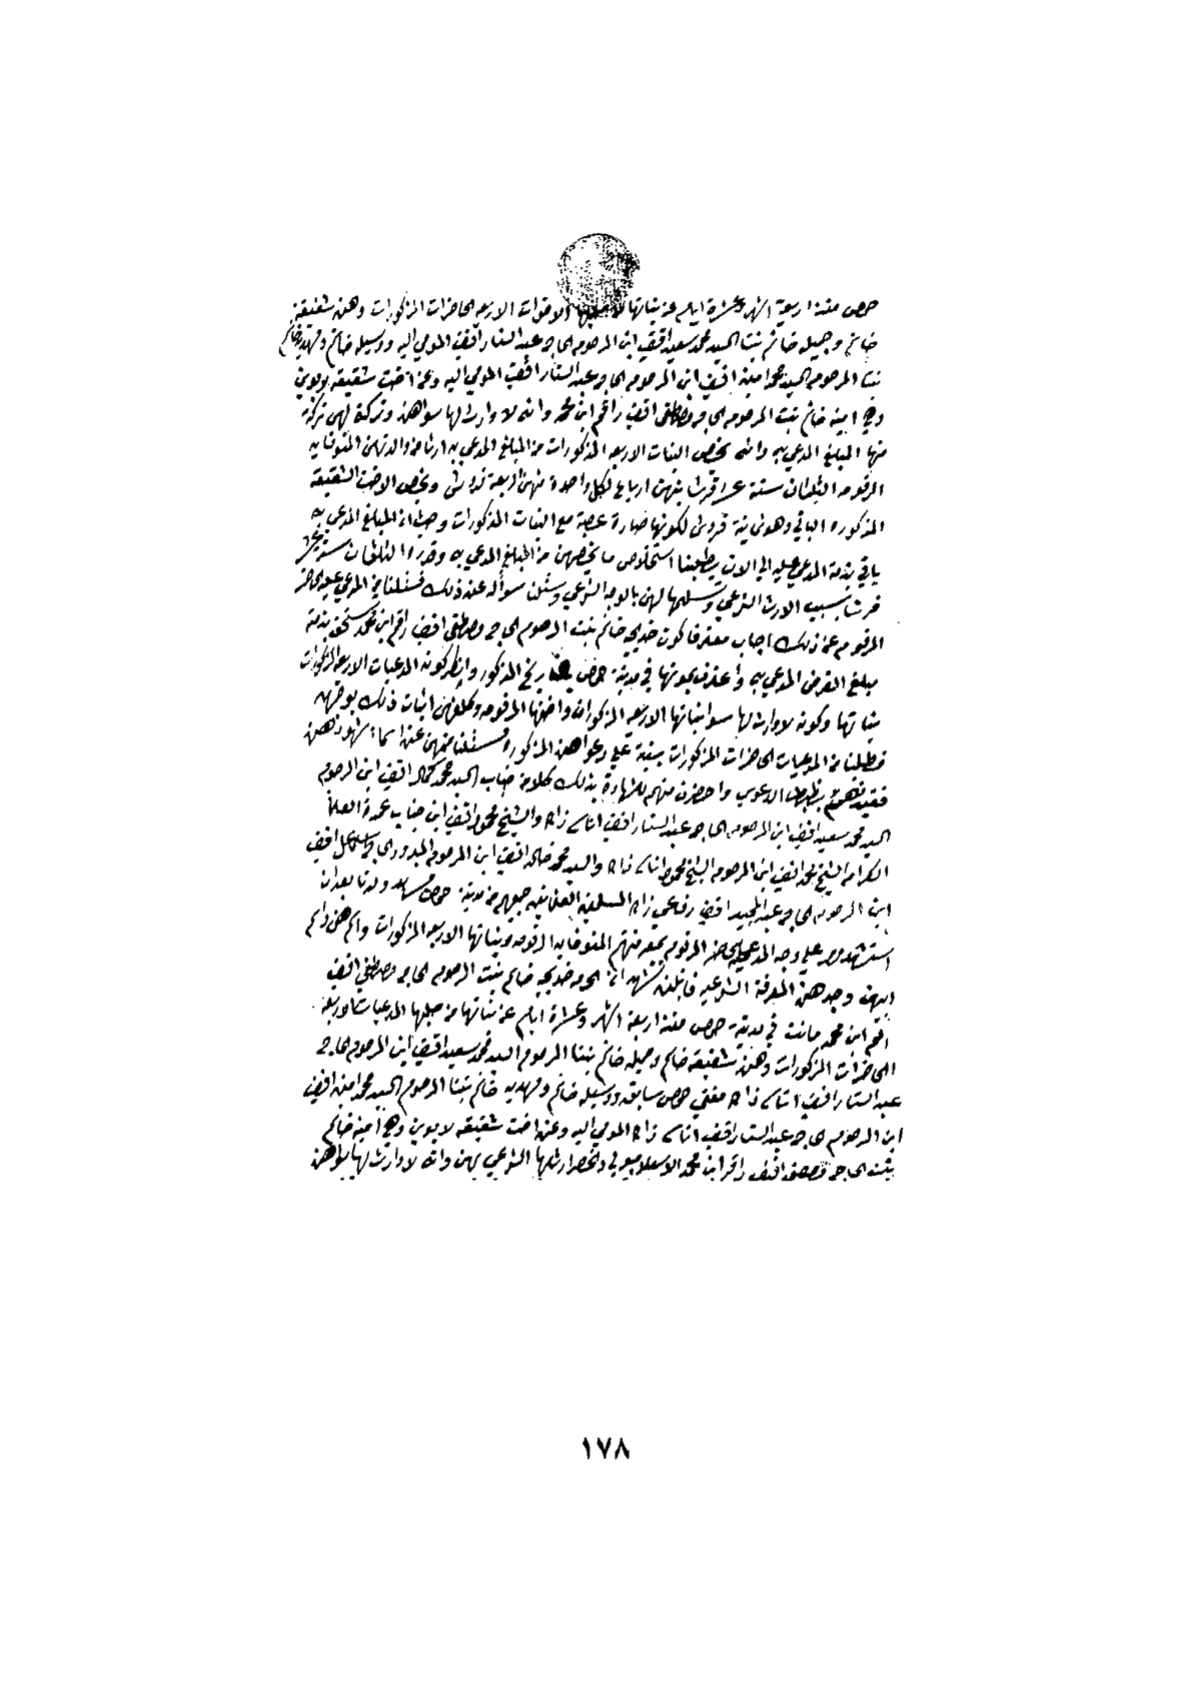 حمص منذ اربعة اشهر وعشرة ايام عن بناتها الاخوات الاربعه الحاضرات المذكورات وهن شفيقه
خانم وجميله خانم بنتا السيد محمد سعيد افندي ابن المرحوم الحاج عبد الستار افندي المومي اليه ووسيله خانم وفهديه خانم
بنتا المرحوم السيد محمد امين افندي ابن المرحوم الحاج عبد الستار افندي المومي اليه وعن اخت شقيقه لابوين
وهي امينه خانم بنت المرحوم الحاج مصطفى افندي راقم ابن محمد وانه لا وارث لها سواهن وتركت لهن تركة
منها المبلغ المدعى به وانه يخص البنات الاربعه المذكورات من المبلغ المدعى به ارثا من والدتهن المتوفايه
المرقومه الثلثان ستة عشر قرشا بينهن ارباع لكل واحدة منهن اربعة قروش ويخص الاخت الشقيقة
المذكوره الباقي وهو ثمانية قروش لكونها صارة عصبة مع البنات المذكورات وحيث ان المبلغ المدعى به
باقي بذمة المدعى عليه الى الان يطلبنا استخلاص ما يخصهن من المبلغ المدعى به وقدره الثلثان ستة عشر
قرشا بسبب الارث الشرعي وتسليمها لهن بالوجه الشرعي وسئلن سواله عن ذلك فسئلنا من المدعى عليه الحاضر
المرقوم عن ذلك اجاب معترفا كون خديجه خانم بنت المرحوم الحاج مصطفى افندي راقم ابن محمد تستحق بذمته
مبلغ القرض المدعى به واعترف بموتها في مدينة حمص بتاريخ المذكور وانكر كون المدعيات الاربعه المذكورات
بناتها وكونه لا وارث لها سوا بناتها الاربعه المذكورات واختها المرقومه وكلفهن اثبات ذلك بوجهه
فطلبنا من المدعيات الحاضرات المذكورات بينة على دعواهن المذكوره فسئلنا منهن عن اسماء شهودهن
بظبط الدعوى واحضرن منهم للشهادة بذلك كلا من جناب السيد محمد كمال افندي ابن المرحوم
السيد محمد سعيد افندي ابن المرحوم الحاج عبد الستار افندي اتاسي زاده والشيخ محمود افندي ابن جناب عمدة العلما
الكرام الشيخ محمد افندي ابن المرحوم الشيخ محمود اتاسي زاده والسيد محمد خالد افندي ابن المرحوم افندي
ابن المرحوم الحاج عبد المجيد افندي رفاعي زاده المسلمين العثمانيين جميعهم من مدينة حمص ولدنا بعد ان
استشهدوهم على وجه المدعى عليه الحاضر المرقوم بمعرفتهم المتوفايه المرقومه وبناتها الاربعه المذكورات وامهن
ابيهن وجدهن المعرفة الشرعيه قائلين نشهد ان خديجه خانم بنت المرحوم الحاج مصطفى افندي
راقم ابن محمد ماتت في مدينة حمص منذ اربعة اشهر وعشرة ايام عن بناتها من صلبها المدعيات الاربعة
الحاضرات المذكورات وهن شفيقه خانم وجميله خانم بنتا المرحوم السيد محمد سعيد افندي ابن المرحوم الحاج
عبد الستار افندي اتاسي زاده مفتي حمص سابق ووسيله خانم وفهديه خانم بنتا المرحوم السيد محمد امين افندي
ابن المرحوم الحاج عبد الستار افندي اتاسي زاده المومي اليه وعن اخت شقيقه لابوين وهي امينه خانم
بنت الحاج مصطفى افندي راقم ابن محمد وانحصر ارثها الشرعي بهن وانه لا وارث لها سواهن
١٧٨